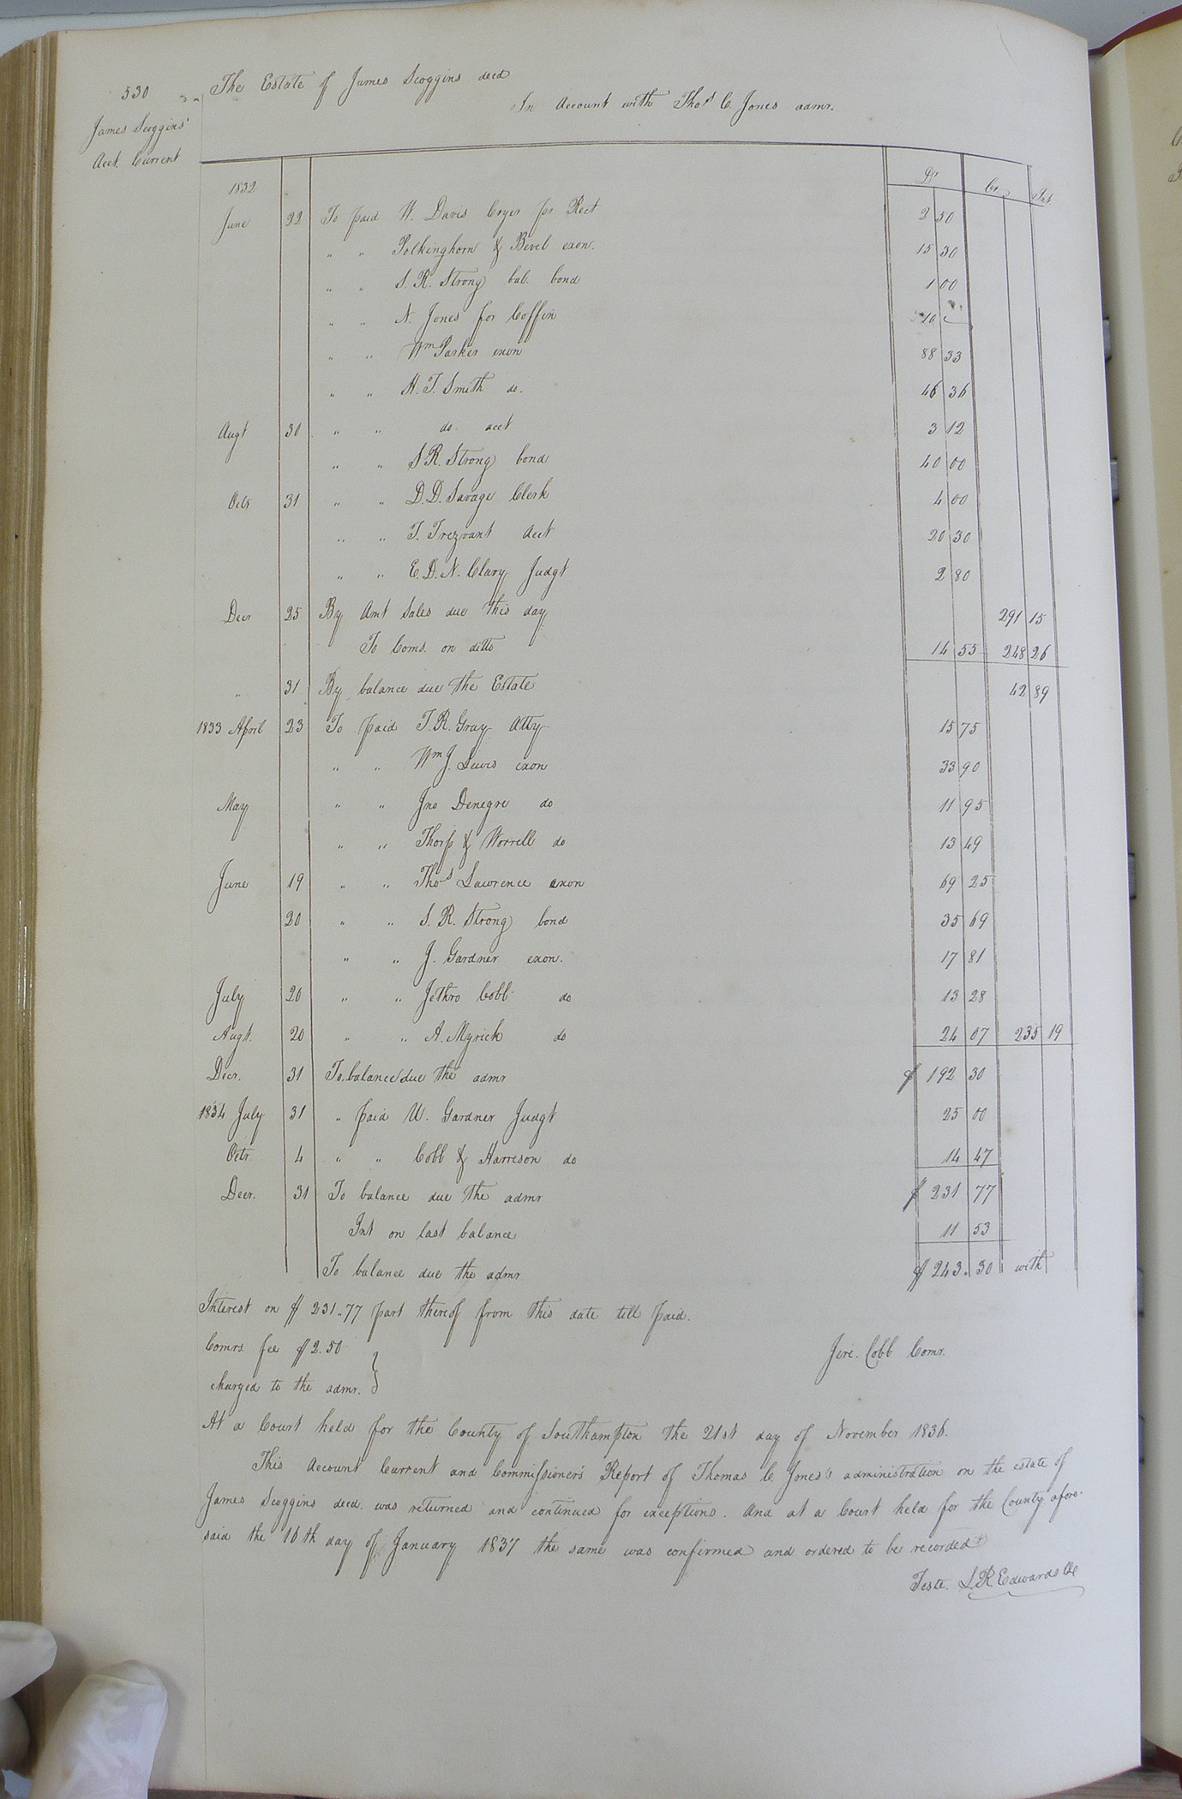 530
The Estate of James Scoggins decd
In Account with Thos C. Jones admr.
James Scoggins'
Acct Current
Dr Cr
1832
June 22 To paid W. Davis Coyer pr Rect 2 50
" " Polkinghorn & Bevel exon. 15 30
" " S. R. Strong bal. bond 1 00
" " N. Jones for Coffin 10
" " Wm Parker exon 88 33
" " H. T. Smith do. 46 36
Augt 30 " " do acct 3 12
" " S. R. Strong bond 40 00
Octr 31 " " D. D. Savage Clerk 4 00
" " T. Trezvant Acct 20 30
" " E. D. N. Clary Judgt 2 80
Decr 25 By Amt Sales due this day 291 15
To Coms. on ditto 14 55 248 26
" 31 By balance due the Estate 42 89
1833 April 23 To paid T. R. Gray Atty 15 75
" " Wm J. Lewis exon 33 90
May " " Jno Denegre do 11 95
" " Thorp & Worrell do 13 49
June 19 " " Thos Lawrence exon 69 25
20 " " S. R. Strong bond 35 69
" " J. Gardner exon. 17 81
July 20 " " Jethro Cobb do 13 28
Augt. 20 " " A. Myrick do 24 07 235 19
Decr. 31 To balance due the admr $ 192 30
1834 July 31 " paid W. Gardner Judgt 25 00
Octr 4 " " Cobb & Harrison do 14 47
Decr. 31 To balance due the admr $ 231 77
Int on last balance 11 53
To balance due the admr $ 243. 30 with
Interest on $ 231.77 part thereof from this date till paid.
Comrs. fee $ 2.50
charged to the admr. }
Jere. Cobb Comr.
At a Court held for the County of Southampton the 21st day of November 1836.
This Account Current and Commissioner's Report of Thomas C Jones's administration on the estate of
James Scoggins decd. was returned and continued for exceptions. And at a Court held for the County afore-
said the 16th day of January 1837 the same was confirmed and ordered to be recorded
Teste. L. R. Edwards Clk